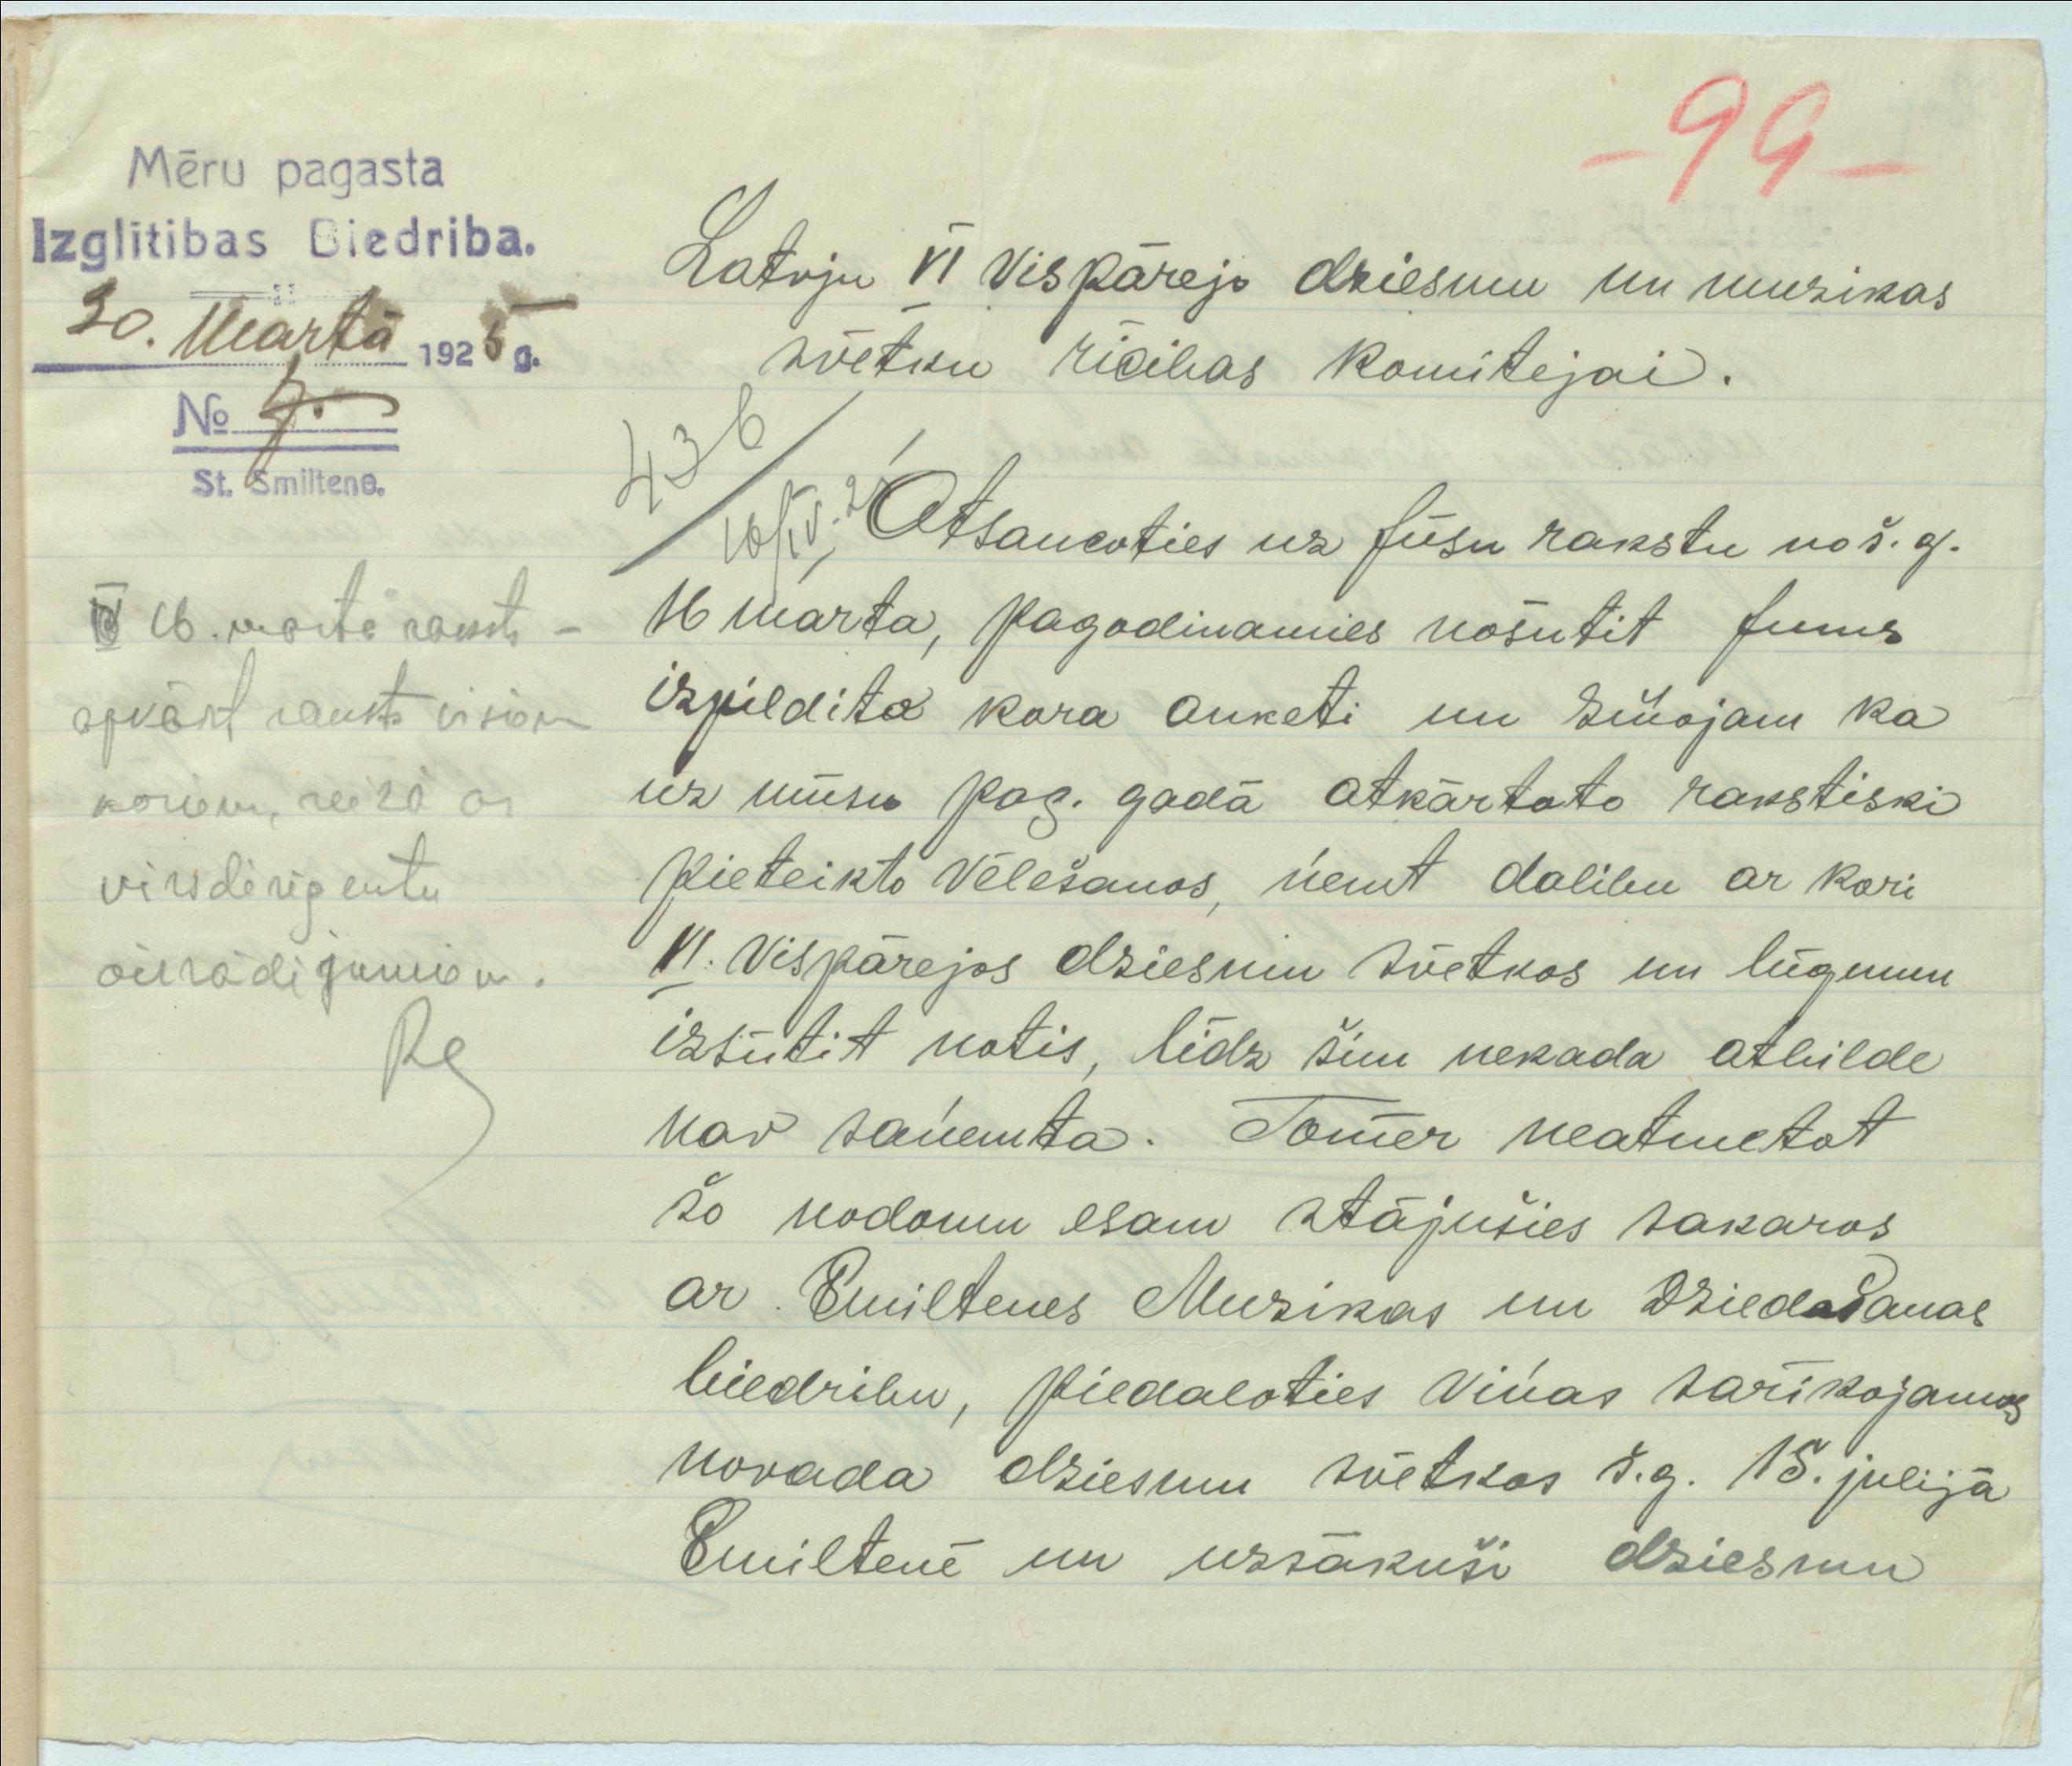 -99-
Mēru pagasta
Izglītības Biedrība.
30. Martā 1925 g.
No 7.
St. Smiltene.
Latvju VI Vispārejo dziesmu un muzikas
svētku rīcibas Komitejai.
436
16/IV.
Atsaucoties uz Jūsu rakstu no š. g.
16 marta, pagodinamies nosūtit Jums
izpildita kora anketi un ziņojam ka
uz mūsu pag. gadā atkārtoto rakstiski
pieteikto vēlešanos, ņemt dalibu ar kori
VI. Vispārejos dziesmu svētkos un lūgumu
izsūtit notis, līdz šim nekada atbilde
nav saņemta. Tomēr neatmetot
šo nodomu esam stājušies sakaros
ar Smiltenes Muzikas un Dziedašanas
biedribu, piedaloties viņas sarīkojamos
novada dziesmu svētkos š.g. 15. julijā
Smiltenē un uzsākuši dziesmu
16. martā raksts -
apkārt raksts visiem
koriem, reizē ar
virsdirigentu
aizrādijumiem.